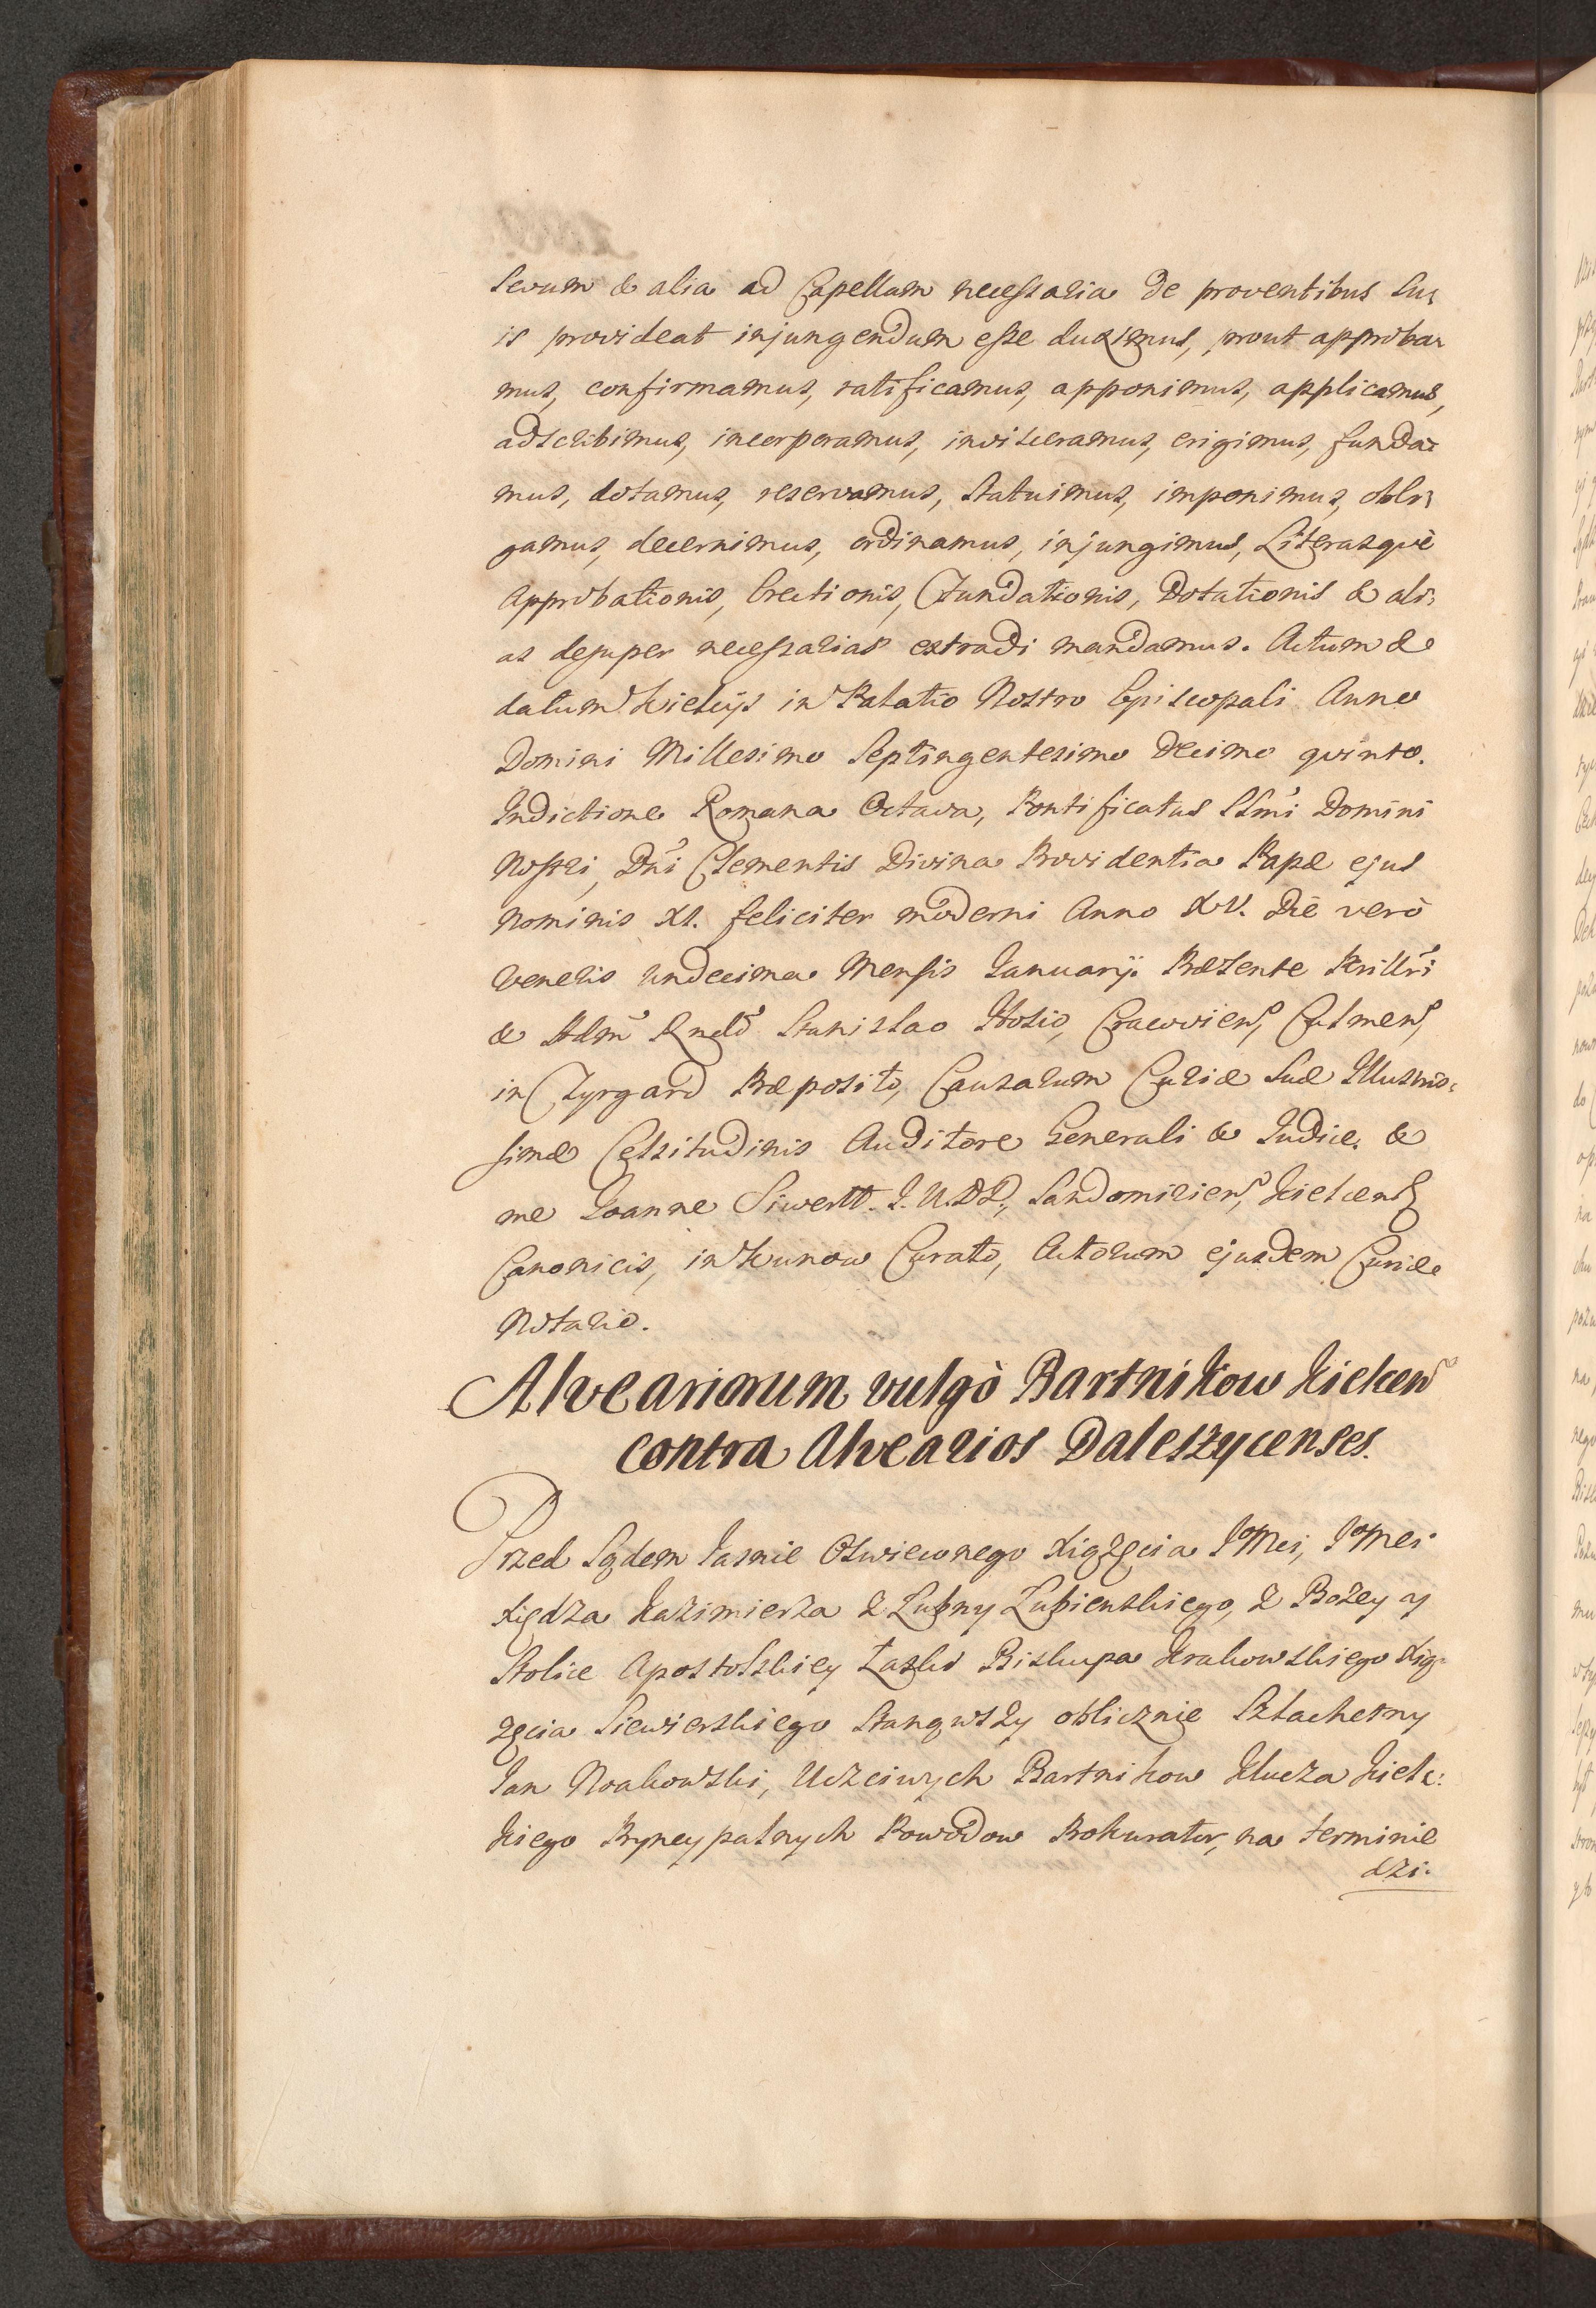 Sevum & alia ad Capellam necessaria de proventibus Su,
is provideat injungendum esse duximus, prout approba,
mus, confirmamus, ratificamus, apponimus, applicamus,
adscribimus, incorporamus, invisceramus, erigimus, funda,
mus, dotamus, reservamus, statuimus, imponimus, obli,
gamus, decernimus, ordinamus, injungimus, Literasquè
Approbationis, Erectionis, Fundationis, Dotationis & ali,
as desuper necessarias extradi mandamus. Actum &
datum Kielcijs in Palatio Nostro Episcopali Anno
Domini Millesimo Septingentesimo Decimo quinto.
Indictione Romana Octava, Pontificatus SSmi Domini
Nostri, Dni Clementis Divina Providentia Papæ ejus
Nominis XI. feliciter moderni Anno XV. Die verò
Veneris undecima Mensis Januarij. Præsente Perillri
& Adm Rndo Stanislao Hosio, Cracovien, Culmen,
in Czyrgard Præposito, Causarum Curiæ Suæ Illustris,
simæ Celsitudinis Auditore Generali & Judice. &
me Joanne Siwertt. J.U.DD., Sandomirien, Kielcen
Canonicis, in Kunow Curato, Actorum ejusdem Curiæ
Notario.
Alveariorum vulgò Bartnikow Kielcen
contra Alvearios Daleszycenses.
Przed Sądem Jasnie Oswieconego Xiążęcia JoMci, JoMci
Xiędza Kazimierza z Łubny Łubienskiego, z Bozey y
Stolice Apostolskiey Łaski Biskupa Krakowskiego Xią,
zęcia Siewierskiego Stanąwszy oblicznie Szlachetny
Jan Noakowski, Uczciwych Bartnikow Klucza Kielc:
kiego Pryncypalnych Powodow Prokurator, na terminie
dzi.